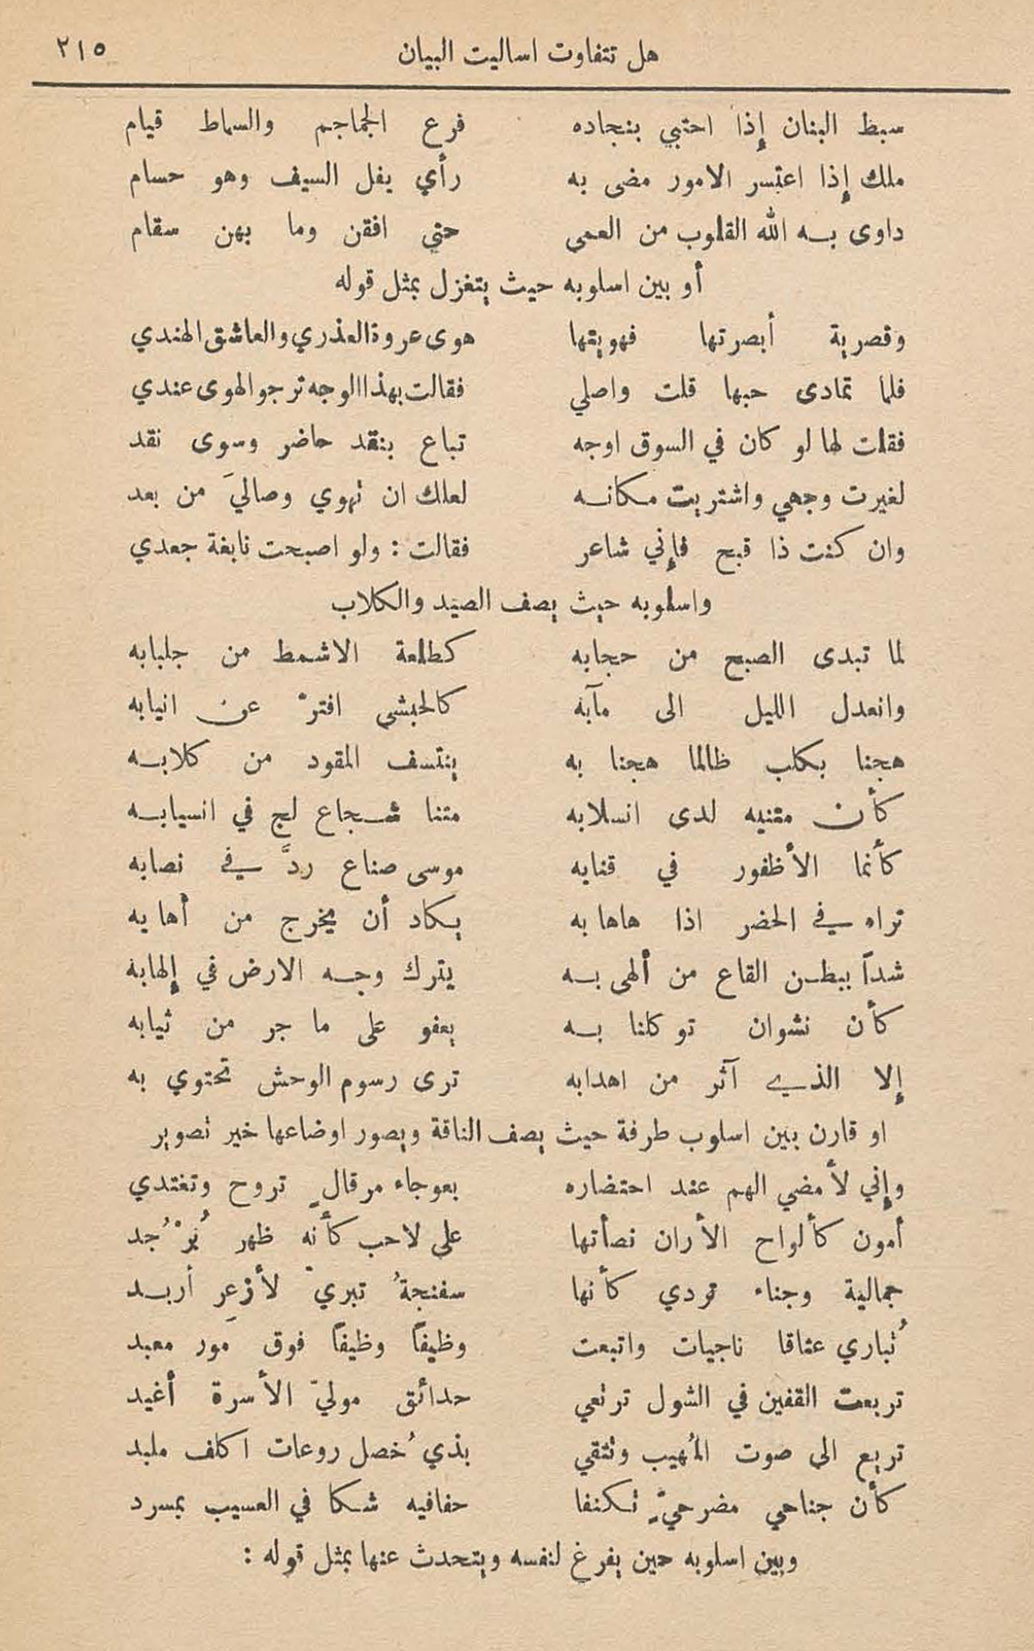 هل تتفاوت اساليت البيان ٢١٥
سبط البنان إذا احتبي بنجاده فرع الجماجم والسماط قيام
ملك إذا اعتسر الامور مضى به رأي يفل السيف وهو حسام
داوى به الله القلوب من العمى حتي افقن وما بهن سقام
أو بين اسلوبه حيث يتغزل بمثل قوله
وقصرية أبصرتها فهويتها هوى عروة العذري والعاشق الهندي
فلما تمادى حبها قلت واصلي فقالت بهذا الوجه ترجو الهوى عندي
فقلت لها لو كان في السوق اوجه تباع بنقد حاضر وسوى نقد
لغيرت وجهي واشتريت مكانه لعلك ان تهوي وصاليَ من بعد
وان كنت ذا قبح فإني شاعر فقالت : ولو اصبحت نابغة جعدي
واسلوبه حيث يصف الصيد والكلاب
لما تبدى الصبح من حجابه كطلعة الاشمط من جلبابه
وانعدل الليل الى مآبه كالحبشي افترّ عن انيابه
هجنا بكلب ظالما هجنا به ينتسف المقود من كلابه
كأن متنيه لدى انسلابه متنا شجاع لج في انسيابه
كأنما الأظفور في قنابه موسى صناع ردَّ في نصابه
تراه في الحضر اذا هاها به يكاد أن يخرج من أهابه
شداً ببطن القاع من ألهى به يترك وجه الارض في إلهابه
كأن نشوان توكلنا به يعفو على ما جر من ثيابه
إلا الذي آثر من اهدابه ترى رسوم الوحش تحتوي به
او قارن بين اسلوب طرفة حيث يصف الناقة ويصور اوضاعها خير تصوير
وإني لأمضي الهم عند احتضاره بعوجاء مرقالٍ تروح وتغتدي
أمون كألواح الأران نصأتها على لاحب كأنه ظهر بُرْجُد
جمالية وجناء تردي كأنها سفنجةُ تبريّ لأزعرِ أربد
تُباري عتاقا ناجيات واتبعت وظيفاً وظيفاً فوق مَور معبد
تربعت القفين في الشول ترتعي حدائق موليّ الأسرة أغيد
تريع الى صوت المُهيب وتتقي بذي خُصل روعات اكلف ملبد
كأن جناحي مضرحيٍّ تكنفا حفافيه شكا في العسيب بمسرد
وبين اسلوبه حين يفرغ لنفسه ويتحدث عنها بمثل قوله :